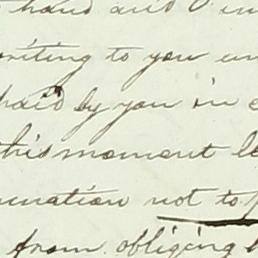 hand and I
writing to you
paid by you in
this moment
nation not to
from obliging